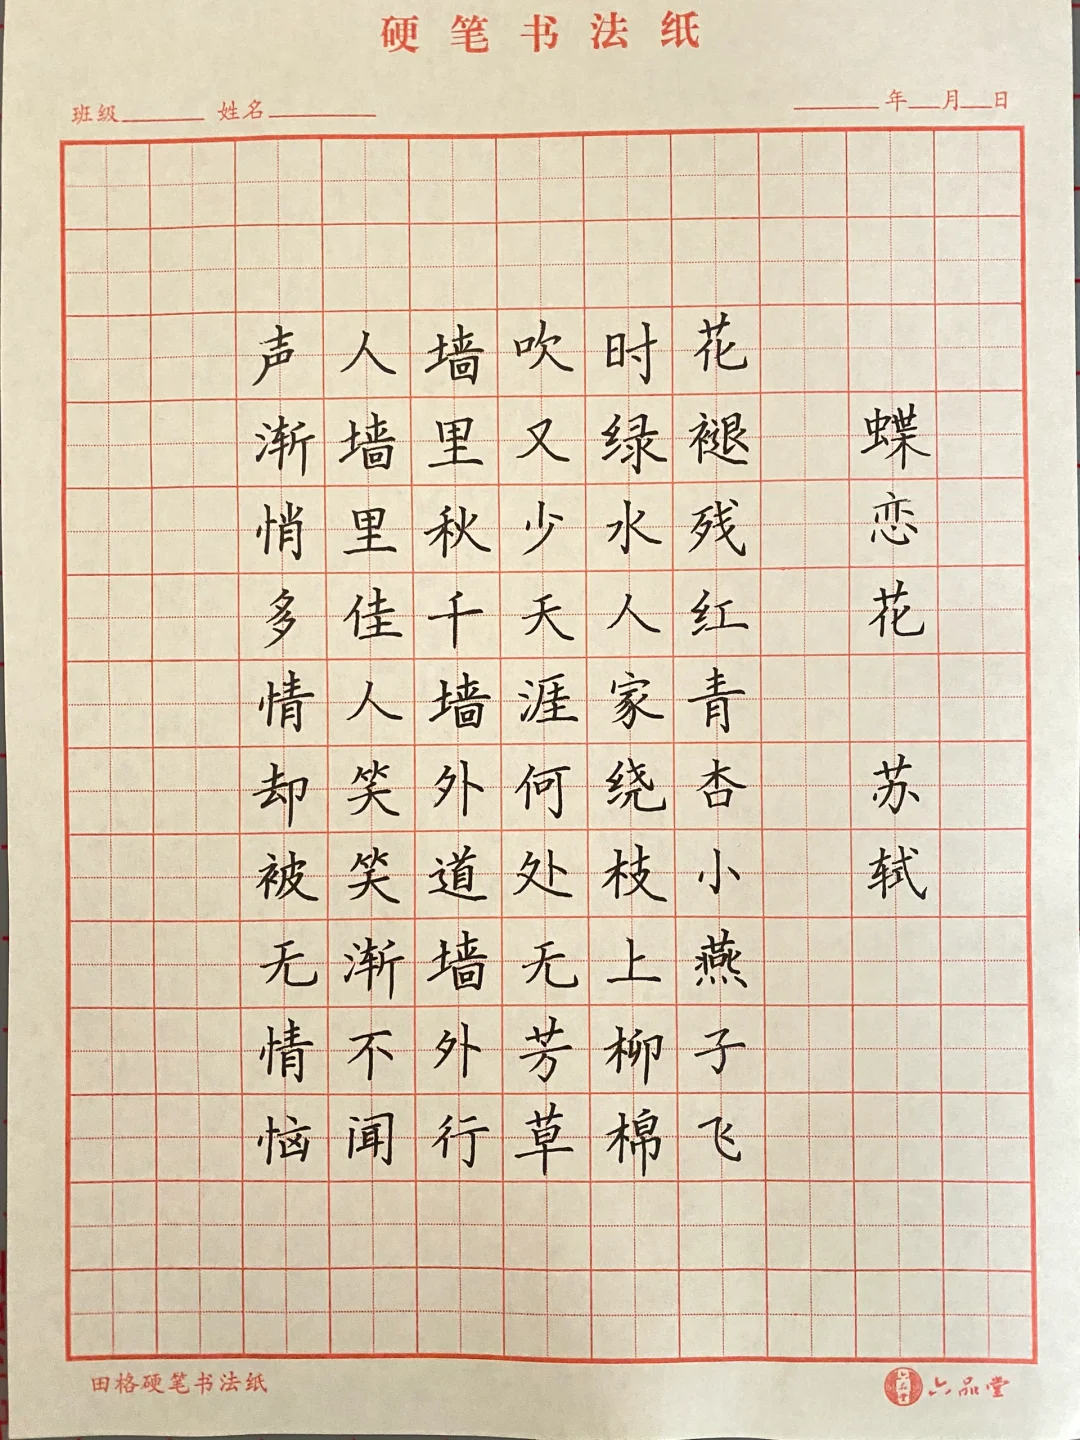 硬笔书法纸
班级 姓名 年 月 日
蝶恋花 苏轼
花褪残红青杏小燕子飞
时绿水人家绕枝上柳棉
吹又少天涯何处无芳草
墙里秋千墙外道墙外行
人墙里佳人笑笑渐不闻
声渐悄多情却被无情恼
田格硬笔书法纸
六品堂 六品堂